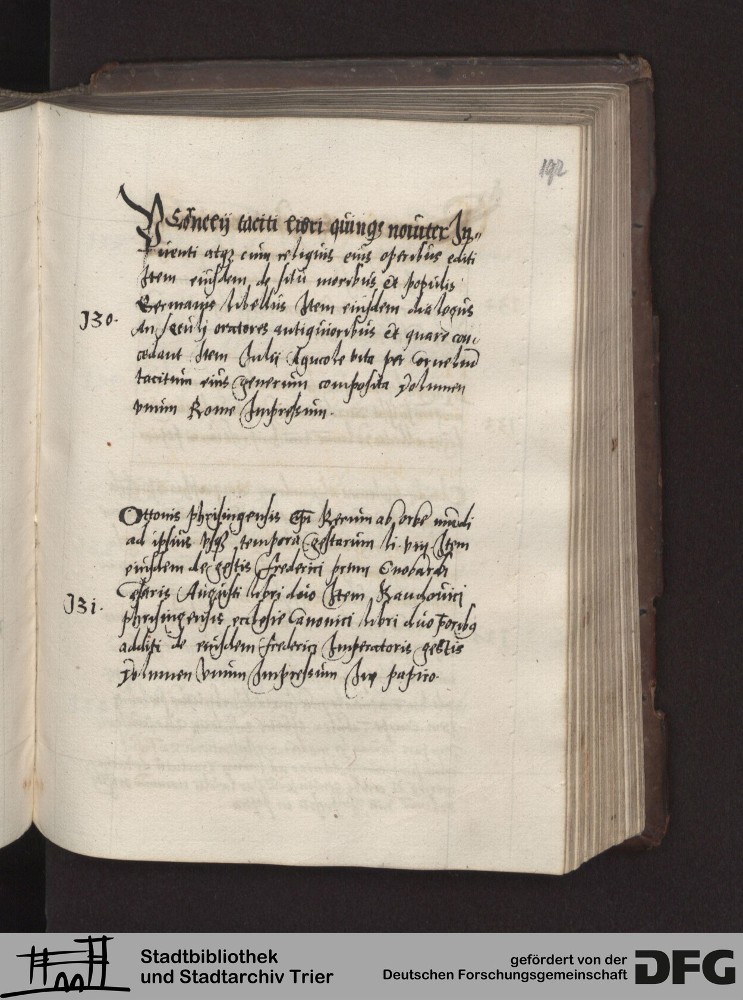 192
P Cornelij taciti libri quinque nouiter In„
uenti atqz cum reliquis eius operibus editi
Item eiusdem de situ moribus et populis
Germanie libellus Item eiusdem dialogus
130.
An seculj oratores antiquioribus et quare con„
cedant Item Julij Agricole vita per Corneliū
tacitum eius generum composita volumen
vnum Rome Impressum.
Ottonis phrisingensis Epi Rerum ab orbe mūdi
ad ipsius vsqz tempora gestarum li. viij Item
eiusdem de gestis Frederici primi Enobarbi
Cesaris Augusti libri duo Item Raudouici
131.
phrisingensis ecclesie Canonici libri duo prioribus
additi de eiusdem Frederici Imperatoris gestis
volumen vnum Impressum In papiro.
Stadtbibliothek
und Stadtarchiv Trier
gefördert von der
Deutschen Forschungsgemeinschaft
DFG